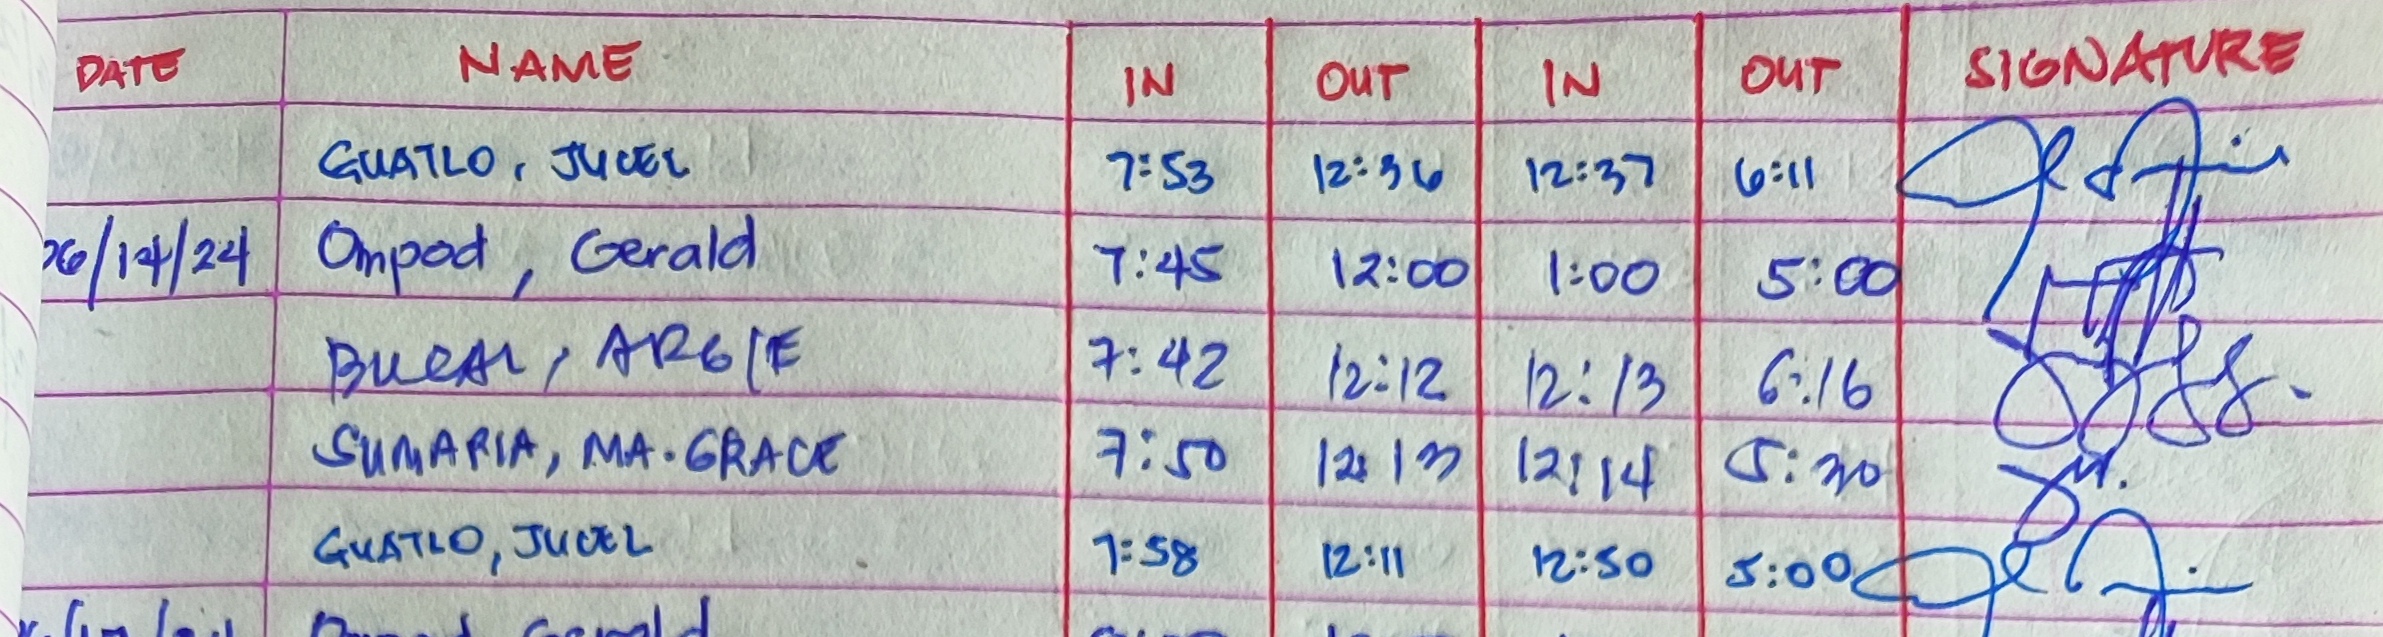 DATE NAME IN OUT IN OUT SIGNATURE
GUATLO, JUCEL 7:53 12:36 12:37 6:11
06/14/24 Ompod, Gerald 7:45 12:00 1:00 5:00
BUCAL, ARGIE 7:42 12:12 12:13 6:16
SUMARIA, MA. GRACE 7:50 12:13 12:14 5:30
GUATLO, JUCEL 7:58 12:11 12:50 5:00
Ompod, Gerald